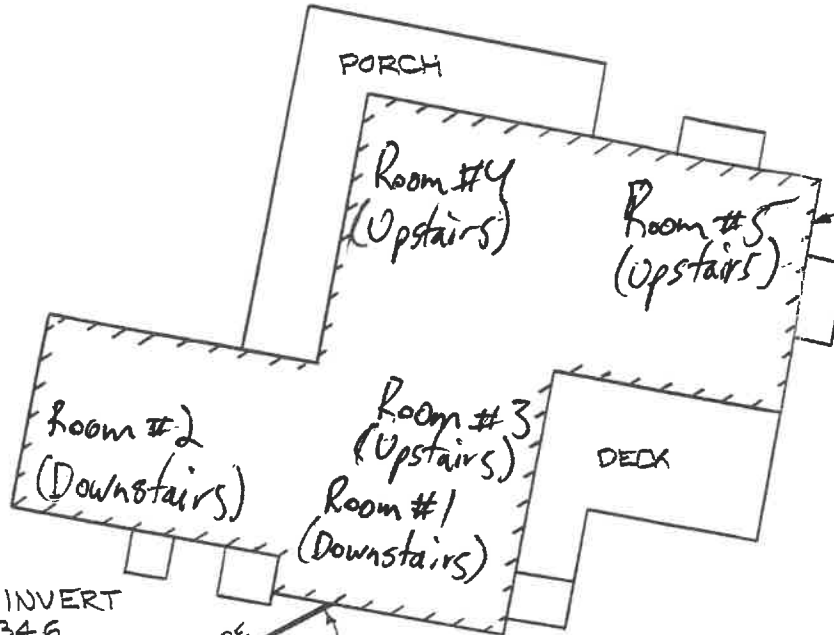 PORCH
Room #4
(Upstairs)
Room #5
(Upstairs)
Room #2
(Downstairs)
Room #3
(Upstairs)
Room #1
(Downstairs)
DECK
INVERT